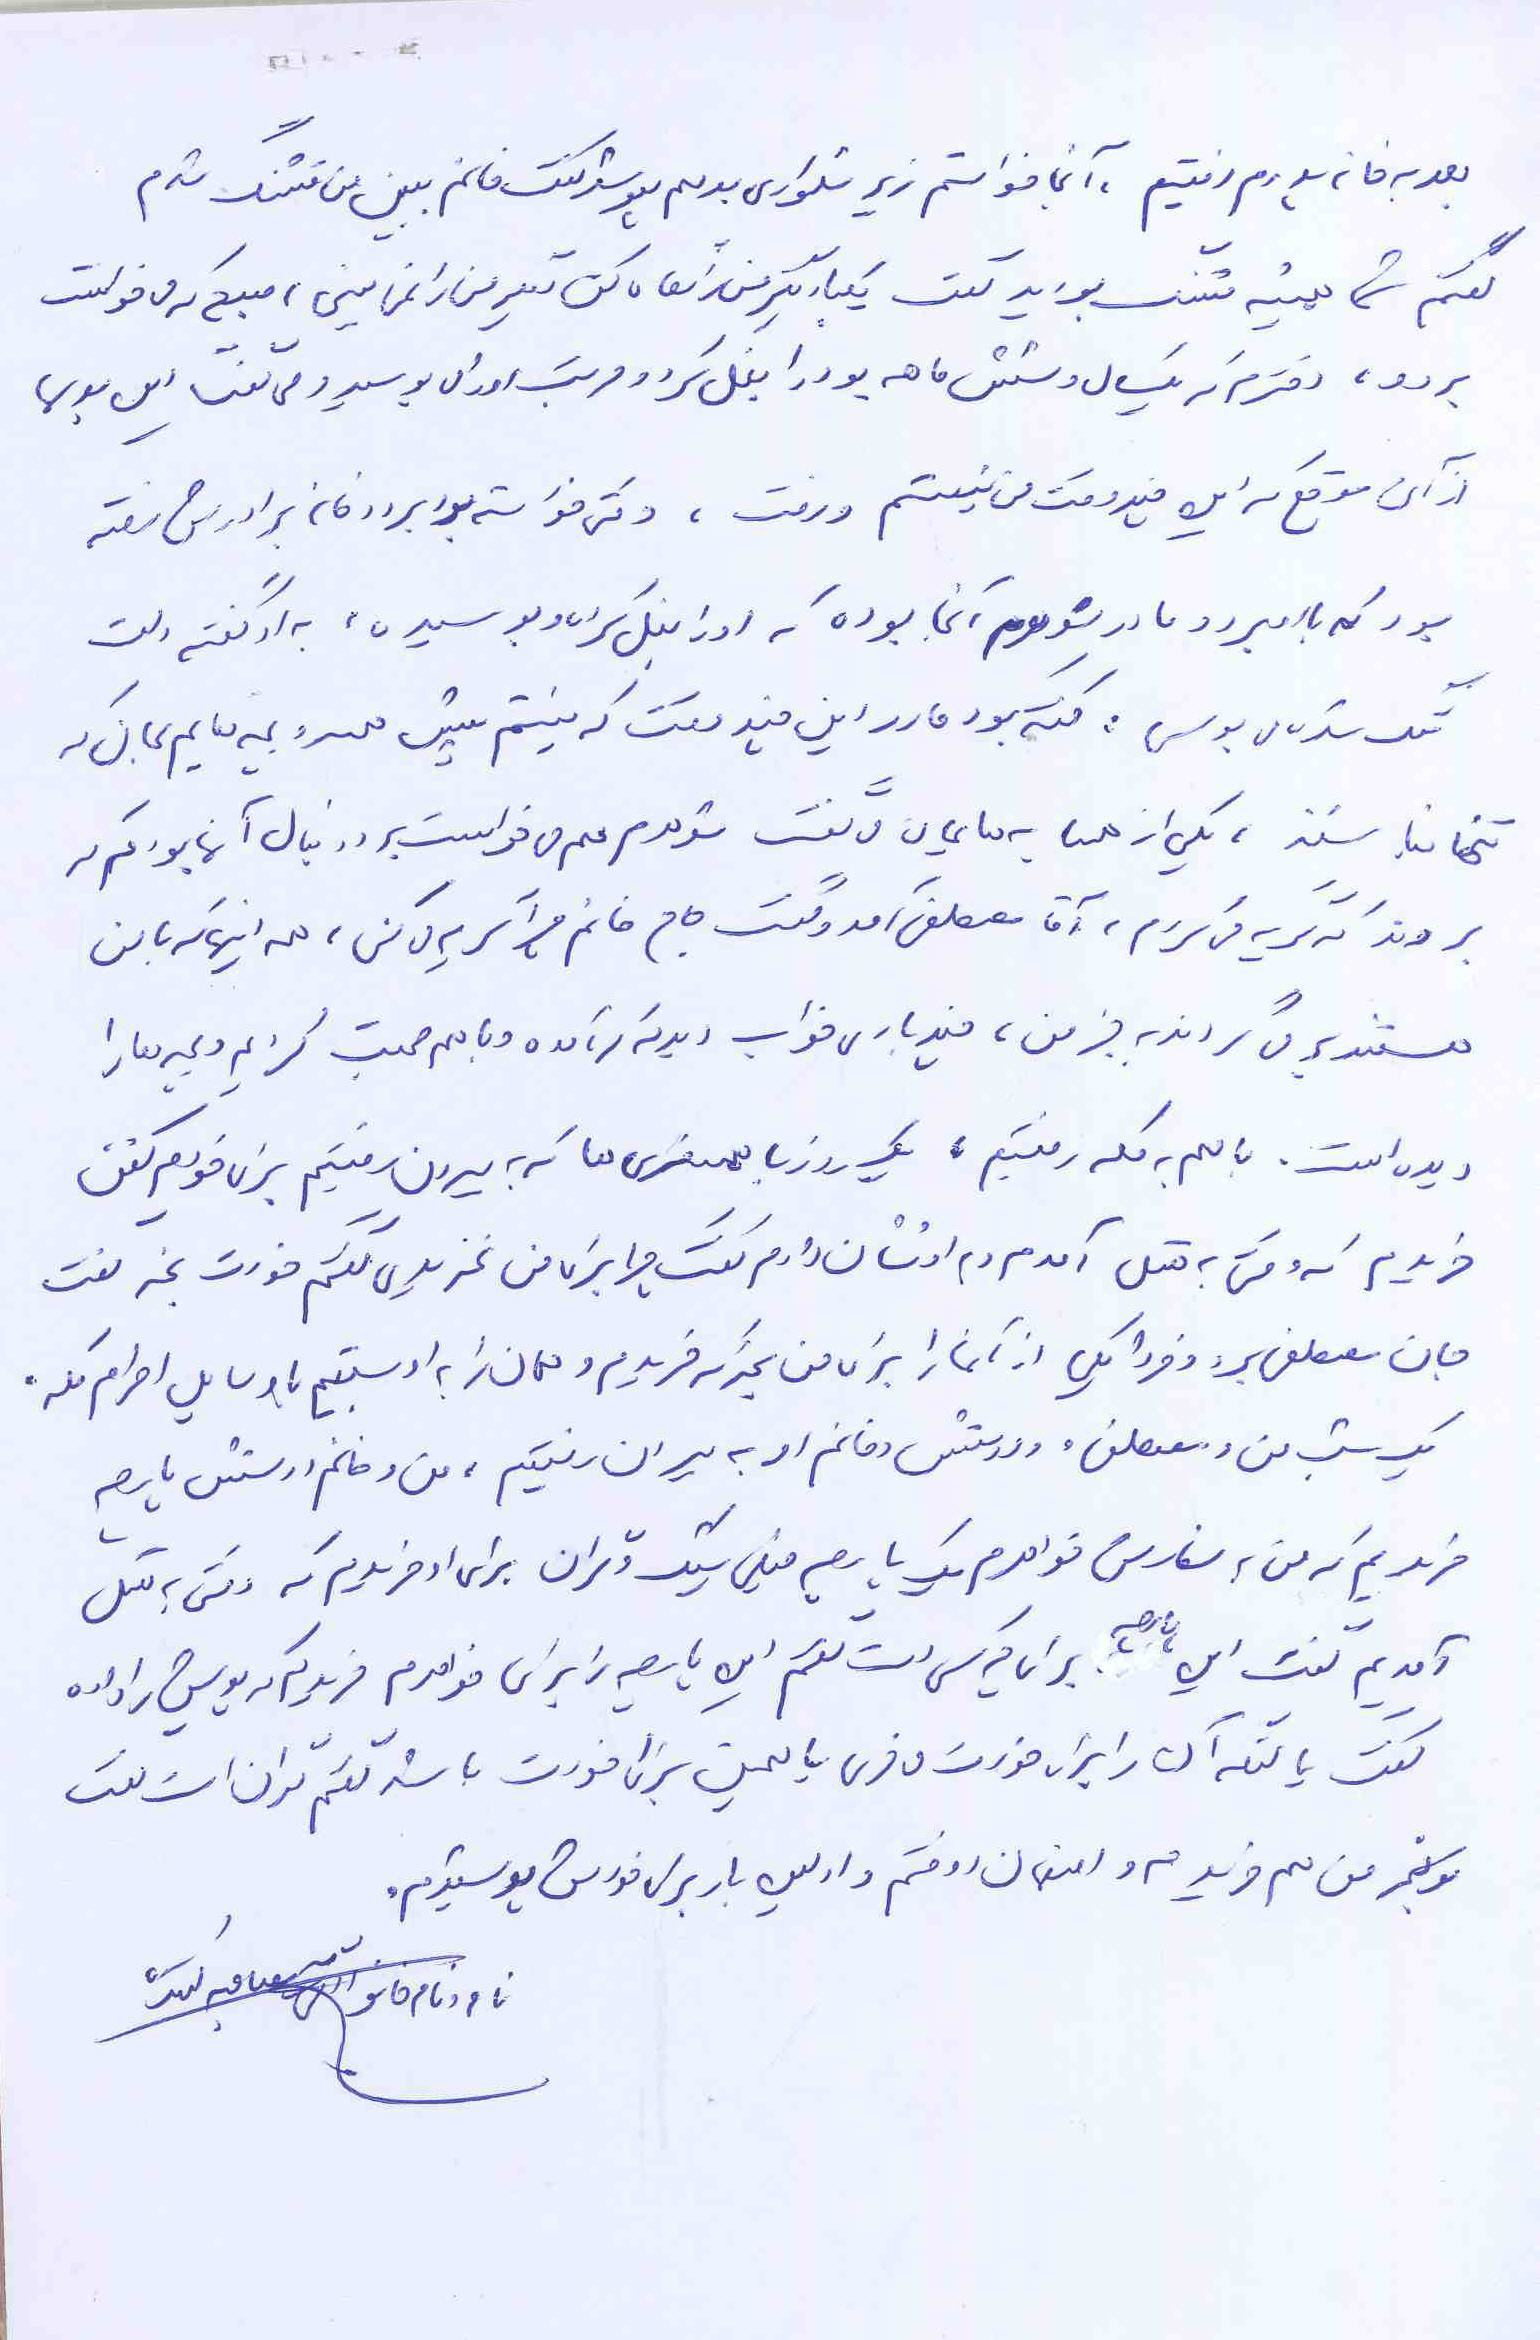 بعد به خانه پدرم رفتیم ، آنجا خواستم زیر شلواری بدهم بپوشد گفت خانم ببین من قشنگ شدم
گفتم شما همیشه قشنگ بودید گفت یکبار دیگر من را نگاه کن دیگر من را نمی بینی ، صبح که می خواست
برود ، دخترم که یکسال و شش ماهه بود را بغل کرد و مرتب او را می بوسید و می گفت این بوسها
از آن موقع که این چند وقت من نیستم و رفت ، وقتی خواسته بود برود خانه برادرش رفته
بود که با امیر رود مادر شوهرم آنجا بوده که او را بغل کرده و بوسیده ، به او گفته دلت
تنگ شده می بوسی ؛ گفته بود مادر این چند وقت که نیستم پیش همسر و بچه هایم بمان که
تنها نباشند ، یکی از همسایه هایمان می گفت شوهرم هم می خواست برود دنبال آنها بودم که
بروند که گریه می کردم ، آقا مصطفی آمد و گفت حاج خانم چرا گریه می کنی ، همه اینها که با من
هستند بر می گردند به جز من ، چند باری خواب دیدم که آمده و با هم صحبت کردیم و بچه ها را
دیده است . با هم به مکه رفتیم ، یک روز با همسفری ها که به بیرون رفتیم برای خودم کفن
خریدم که وقتی به هتل آمدم و به او نشان دادم گفت چرا برای من نخریدی گفتم خودت بخر گفت
جان مصطفی برو و فردا یکی از آنها را برای من بخر که خریدم و همان را به او بستیم با وسایل احرام مکه .
یک شب من و مصطفی و دوستش و خانم او به بیرون رفتیم ، من و خانم دوستش پارچه
خریدیم که من به سفارش خواهرم یک پارچه خیلی شیک و گران برای او خریدم که وقتی به هتل
آمدیم گفت این پارچه برای چه کسی است گفتم این پارچه را برای خواهرم خریدم که پولش را داده
گفت یا لنگه آن را برای خودت می خری یا همین برای خودت باشد گفتم گران است گفت
تو بخر من هم خریدم و امتحان دوختم و اولین بار برای خودش پوشیدم .
نام و نام خانوادگی مصاحبه کننده